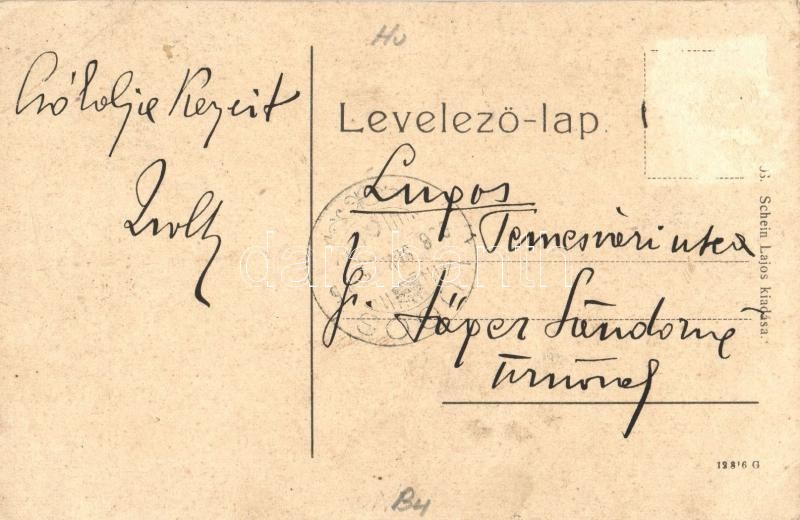 Hu
Csókolja Kezeit
Zsolt
Levelező-lap.
Lugos
Temesvári utca
Gr. Sándorné
Úrnőnek
Schein Lajos kiadása.
darabanth
B4